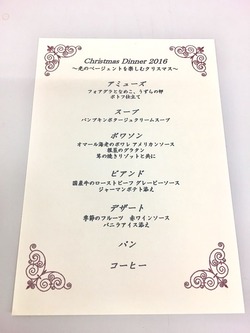 Christmas Dinner 2016
～光のページェントを楽しむクリスマス～
アミューズ
フォアグラとなめこ、うずらの卵
ポトフ仕立て
スープ
パンプキンポタージュクリームスープ
ポワソン
オマール海老のポワレ アメリカンソース
根菜のグラタン
茸の焼きリゾットと共に
ビアンド
国産牛のローストビーフ グレービーソース
ジャーマンポテト添え
デザート
季節のフルーツ 赤ワインソース
バニラアイス添え
パン
コーヒー